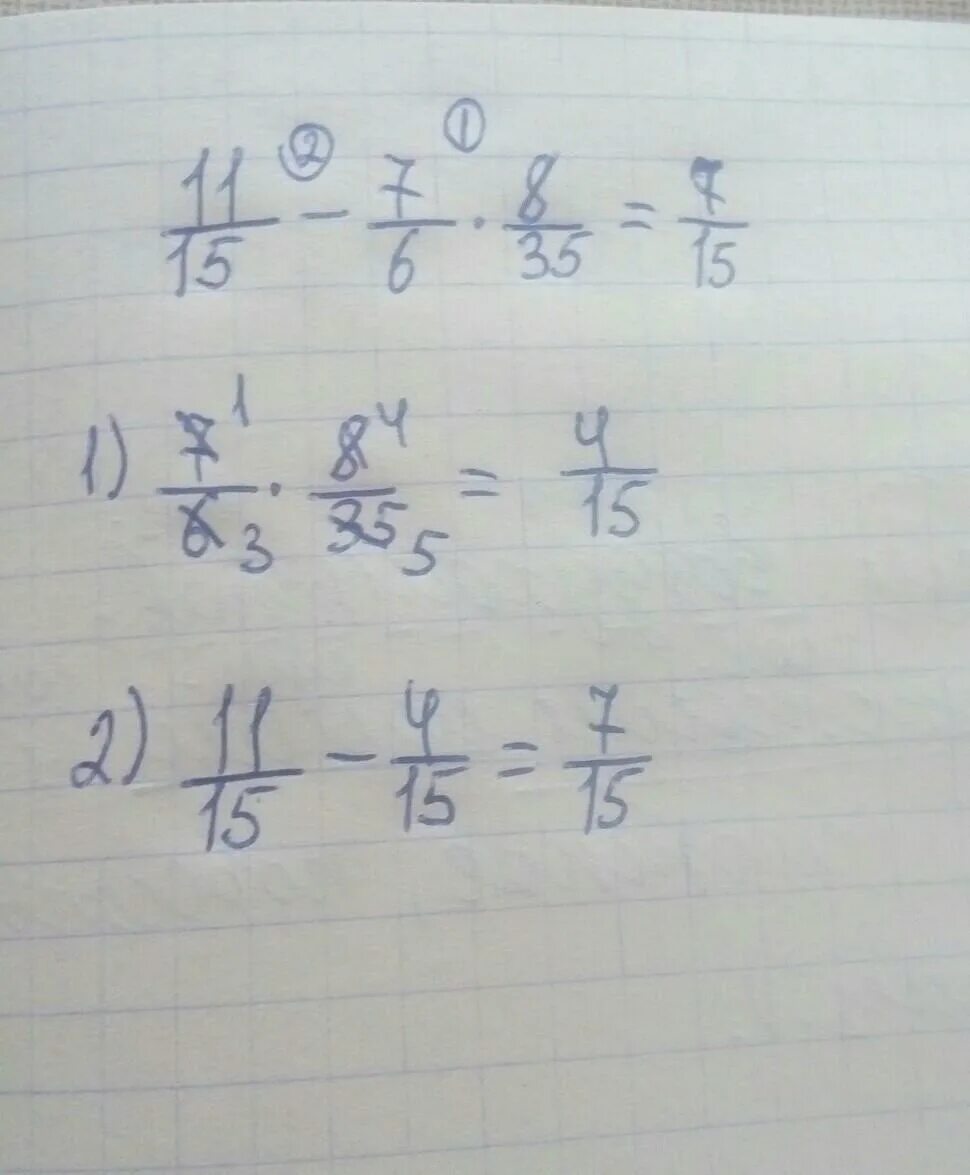 ② ①
11/15 − 7/6 · 8/35 = 7/15
1) 7¹/6₃ · 8⁴/35₅ = 4/15
2) 11/15 − 4/15 = 7/15